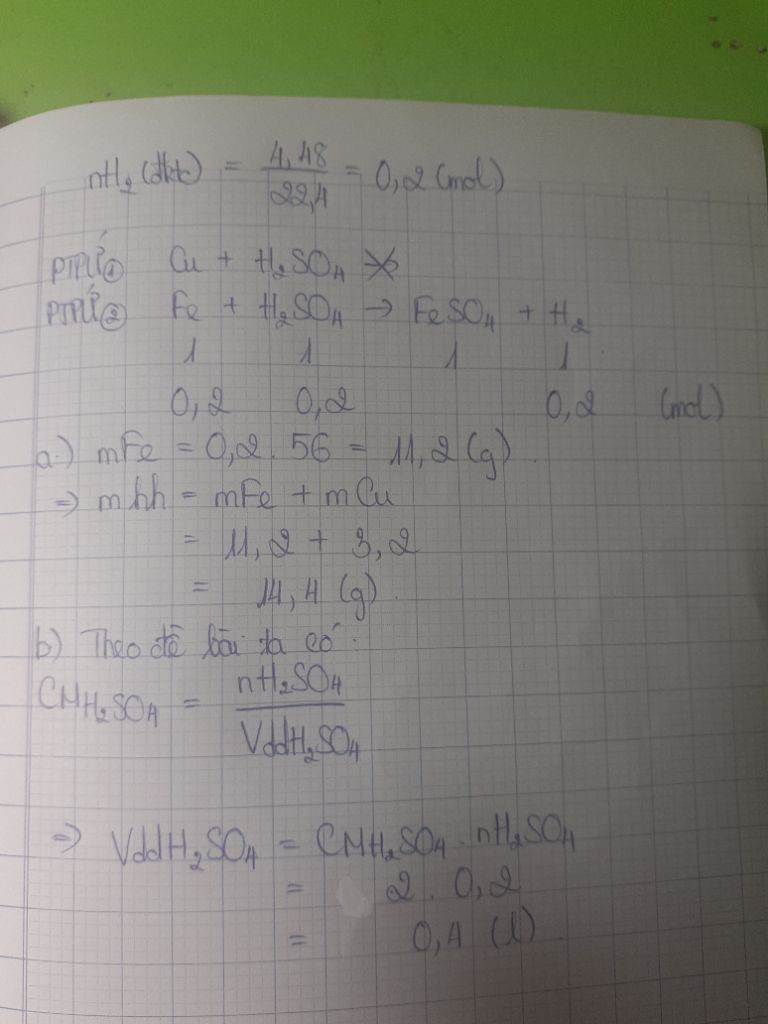 nH₂ (đktc) = 4,48 / 22,4 = 0,2 (mol)
PTPƯ① Cu + H₂SO₄ ✗
PTPƯ② Fe + H₂SO₄ → FeSO₄ + H₂
1 1 1 1
0,2 0,2 0,2 (mol)
a.) mFe = 0,2 . 56 = 11,2 (g).
=> m hh = mFe + mCu
= 11,2 + 3,2
= 14,4 (g).
b) Theo đề bài ta có:
CMH₂SO₄ = nH₂SO₄ / VddH₂SO₄
=> VddH₂SO₄ = CMH₂SO₄ . nH₂SO₄
= 2 . 0,2
= 0,4 (l).